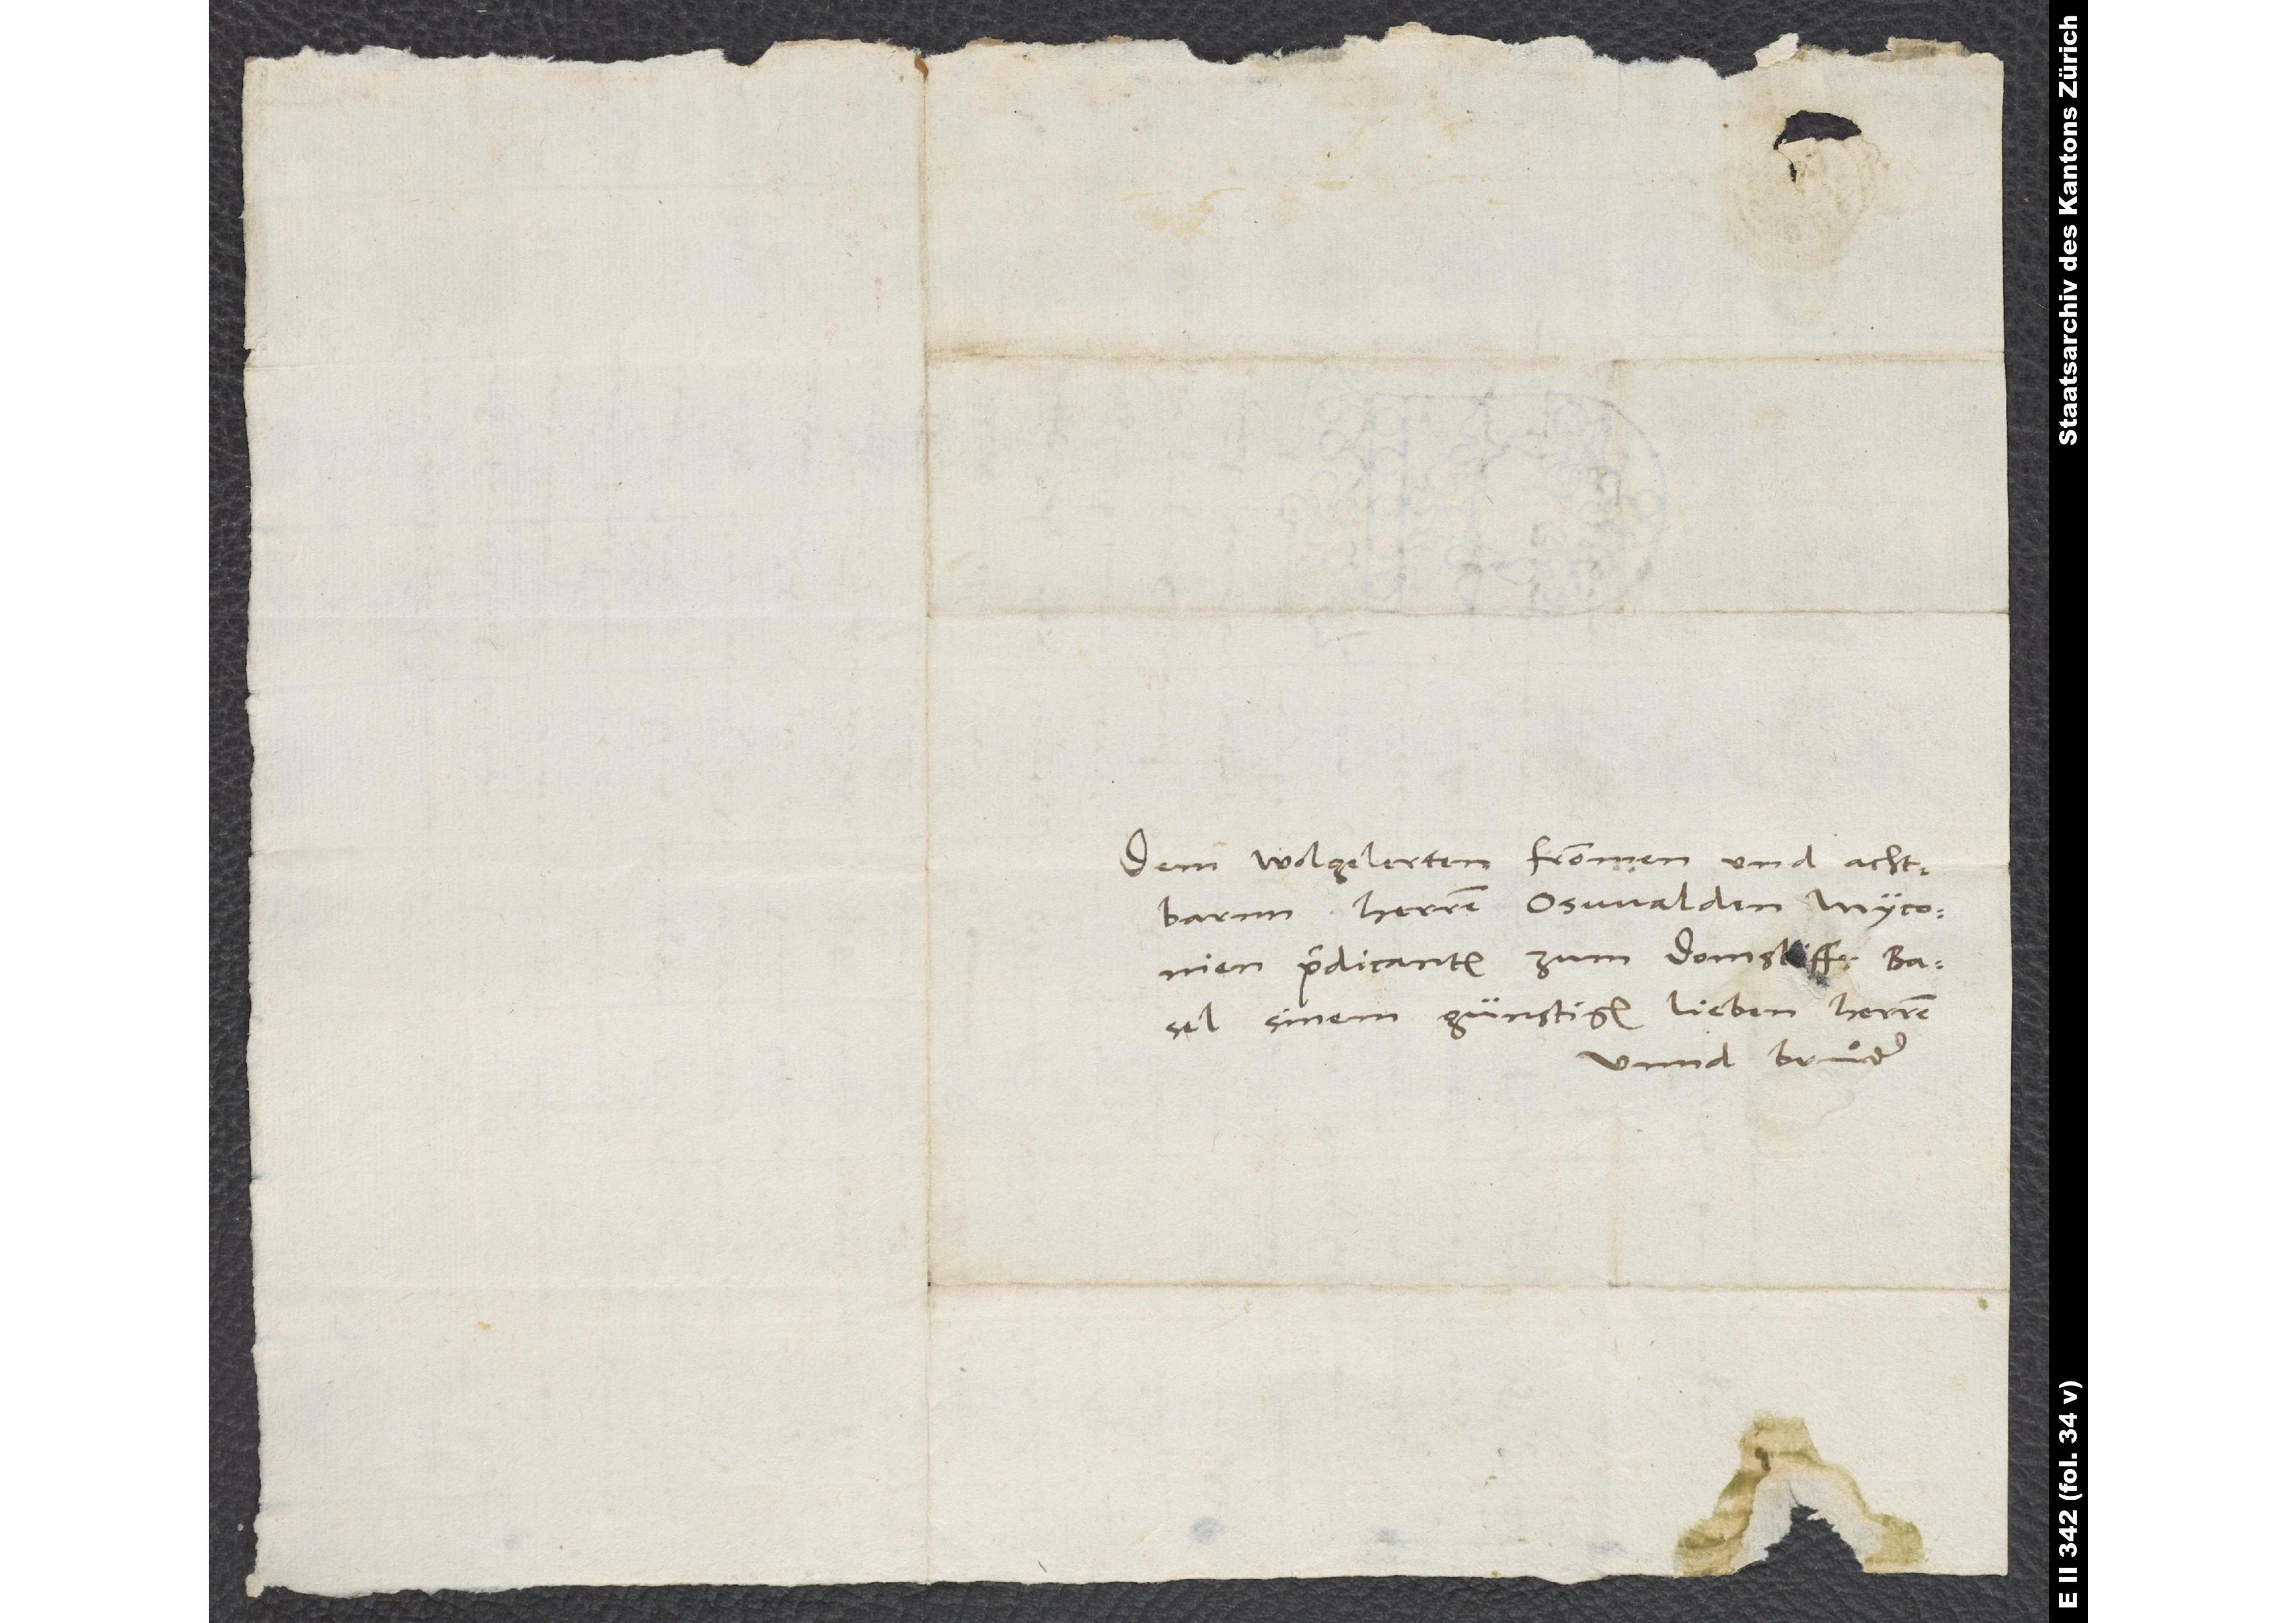 Dem wolgelerten from̄en und acht⸗
barnn herrē Osuualden Mÿco⸗
nien p̄dicantē zum Domstiffe Ba⸗
sel sinem günstigē lieben herrē
vnnd bruͦder
Staatsarchiv des Kantons Zürich
E II 342 (fol. 34 v)